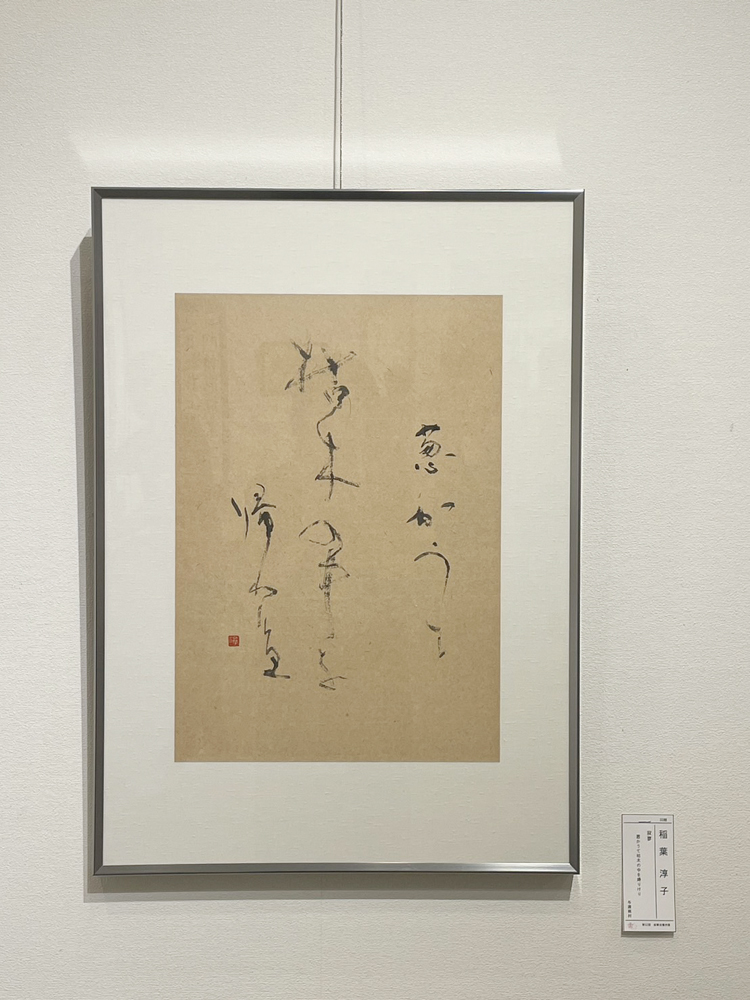 葱かうて
枯木の中を
帰りけり
稲葉 淳子
葱かうて枯木の中を帰りけり
与謝蕪村